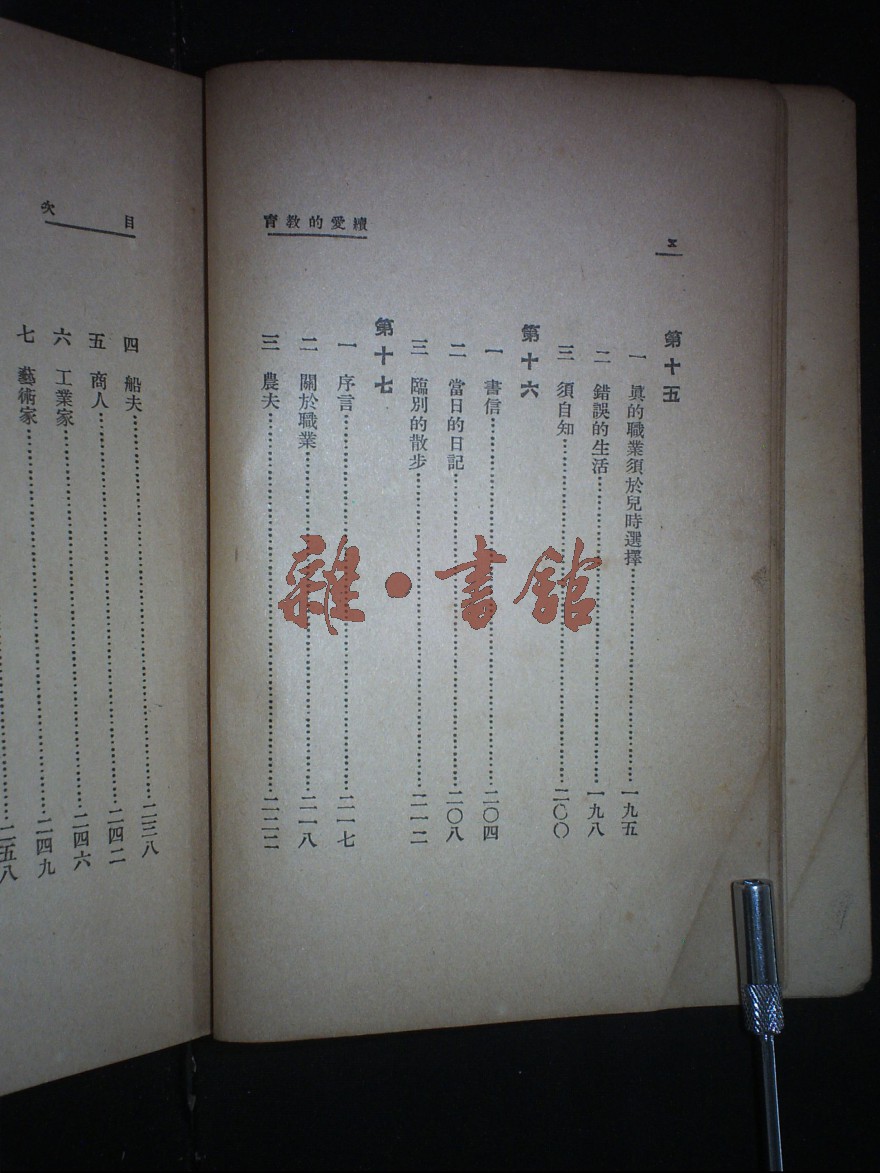 續愛的教育
x
第十五
一 眞的職業須於兒時選擇……一九五
二 錯誤的生活……一九八
三 須自知……二〇〇
第十六
一 書信……二〇四
二 當日的日記……二〇八
三 臨別的散步……二一二
第十七
一 序言……二一七
二 關於職業……二一八
三 農夫……二二二
目次
四 船夫……二三八
五 商人……二四二
六 工業家……二四六
七 藝術家……二四九
二五八
雜·書館